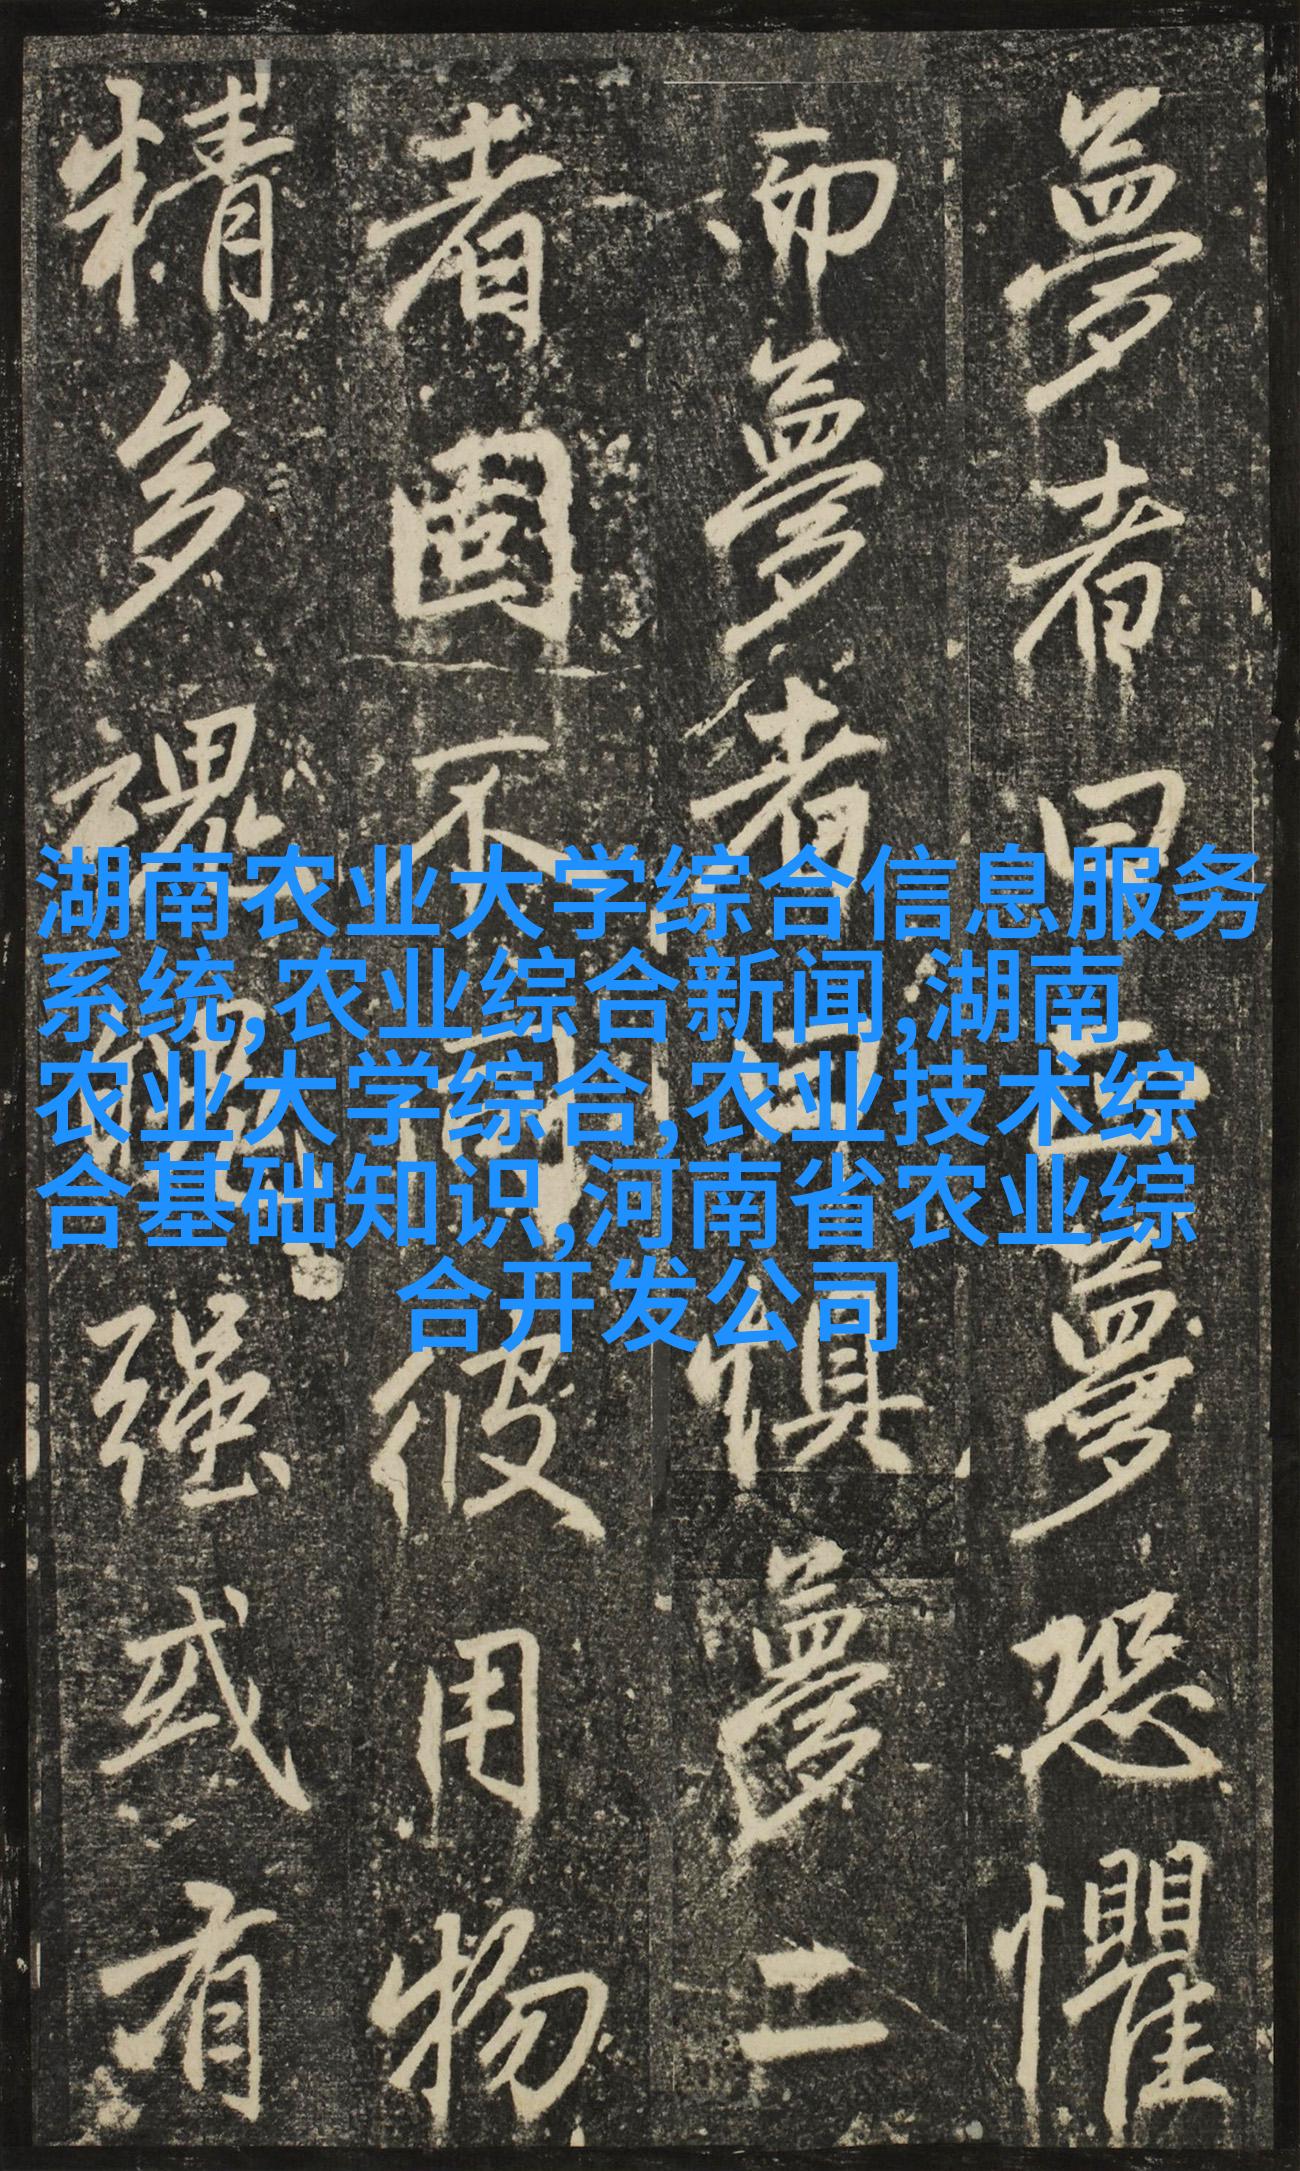 夢者曰夢恐懼
而夢者曰惧夢二
者固不彼用物
精多强或有
湖南农业大学综合信息服务
系统,农业综合新闻,湖南
农业大学综合,农业技术综
合基础知识,河南省农业综
合开发公司